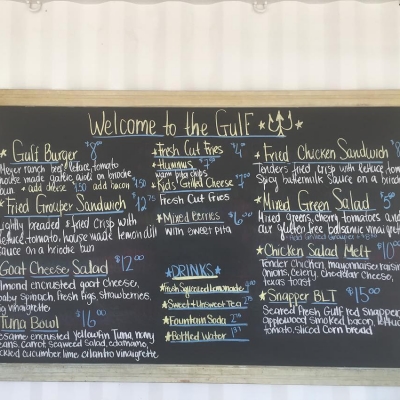 Welcome to the Gulf
Gulf Burger $8
Meyer ranch beef, lettuce, tomato
house made garlic aioli on brioche
bun + add cheese .50 add bacon 1.50
Fried Grouper Sandwich $12.75
Lightly breaded & fried crisp with
lettuce, tomato, house made lemon dill
sauce on a brioche bun
Goat Cheese Salad $12.00
almond encrusted goat cheese,
baby spinach, fresh figs, strawberries,
fig vinaigrette
Tuna Bowl $16.00
sesame encrusted yellowfin tuna, honey
carrot, seaweed salad, edamame,
pickled cucumber lime cilantro vinaigrette
Fresh Cut Fries $4
Hummus $7
warm pita chips
Kids Grilled Cheese $7
Fresh Cut Fries
Mixed berries $6.50
with sweet pita
DRINKS
Fresh Squeezed Lemonade
Sweet & Unsweet Tea
Fountain Soda
Bottled Water
Fried Chicken Sandwich
Tenders fried crisp with lettuce, tomato
spicy buttermilk sauce on a brioche
bun
Mixed Green Salad $5
Mixed greens, cherry tomatoes and
our gluten free balsamic vinaigrette
Chicken Salad Melt $10.00
Tender chicken, mayonnaise, raisins
onions, celery, cheddar cheese,
texas toast
Snapper BLT $15.00
Seared Fresh Gulf red snapper,
applewood smoked bacon, lettuce,
tomato, sliced corn bread